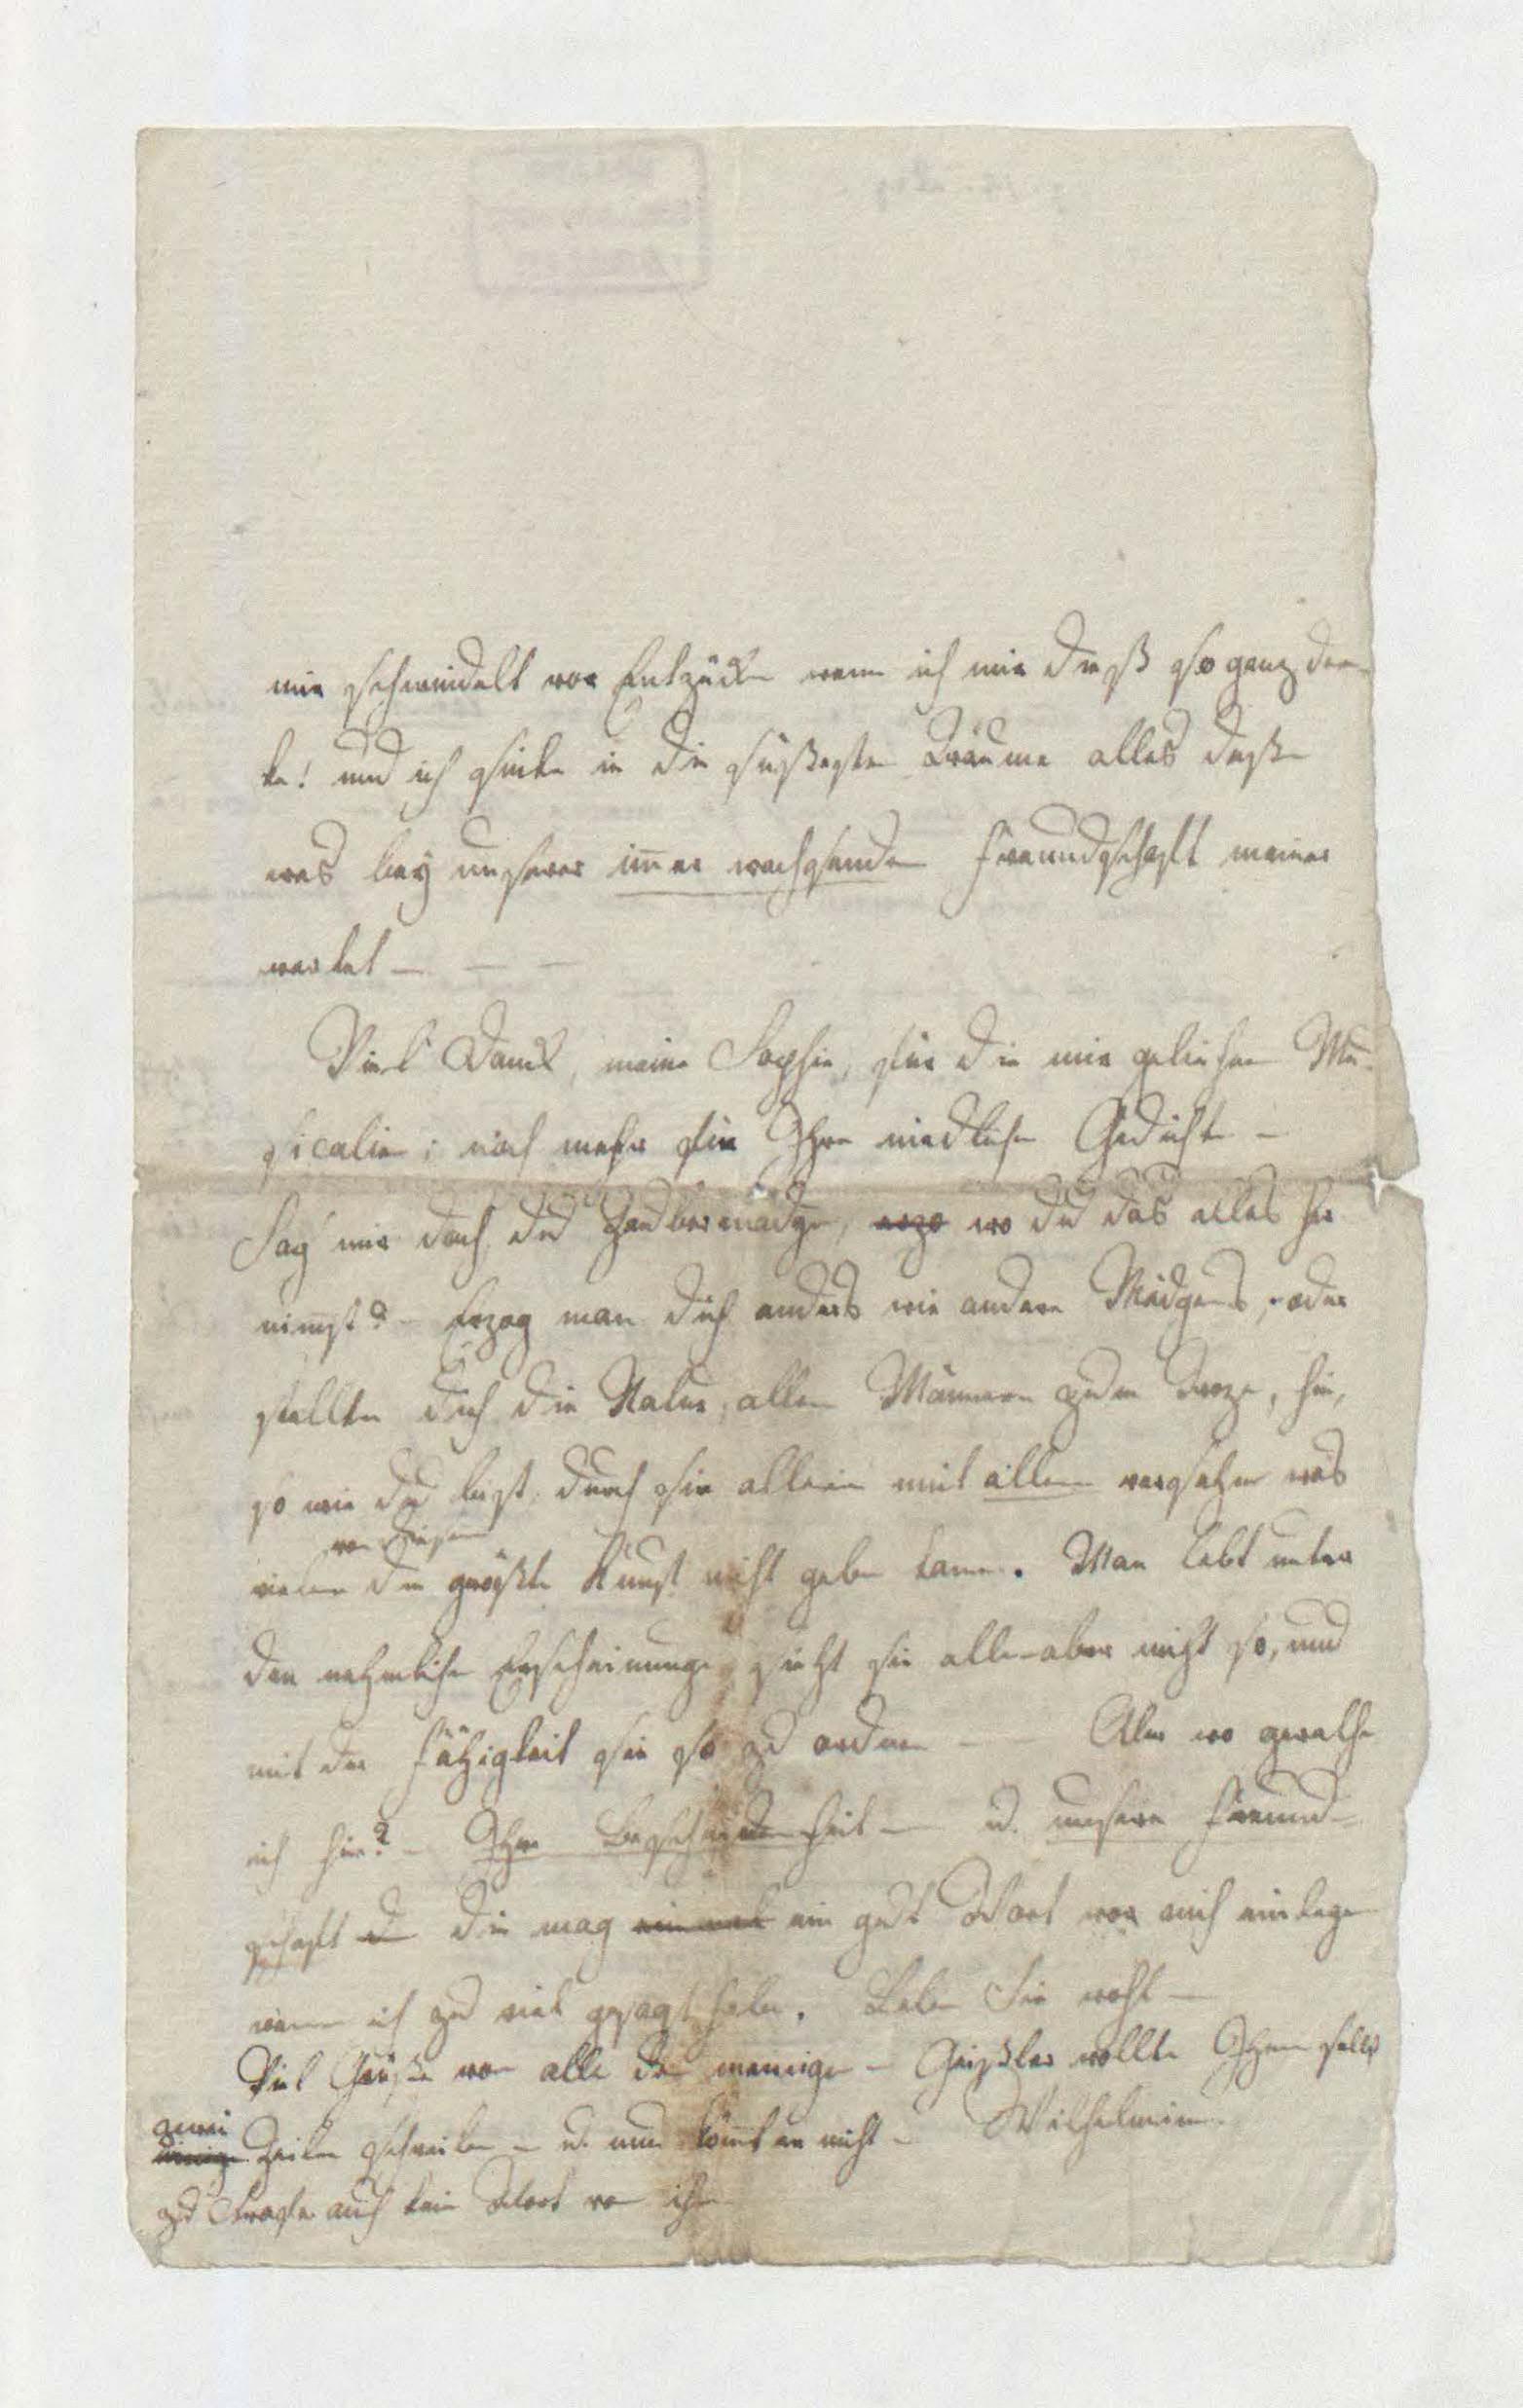 mir schwindelt vor Entzücken wenn ich mir dieß so ganz den-
ke! und ich sinke in die süßesten Träume alles deßen
was bey unserer im̅er wachsenden Freundschaft meiner
wartet — — —
Viel Dank, meine Sophie, für die mir geliehen Mu-
sicalien; noch mehr für Ihre niedlichen Gedichte —
Sag' mir doch du Zaubermädgen, wo du das alles her
nim̅st? — Erzog man dich anders wie andere Mädgens, oder
stellte dich die Natur, allen Männern zum Troze, hin,
so wie du bist, durch sie allein mit allem versehen was
von diesen
vielen die größte Kunst nicht geben kann. Man lebt unter
den nehmlichen Erscheinungen, sieht sie alle aber nicht so, und
mit der Fähigkeit sie so zu ordnen — — Aber wo gerathe
ich hin? — Ihre Bescheidenheit — u. unsere Freund-
schaft die mag ein gut Wort vor mich einlegen
wenn ich zu viel gesagt habe. Leben Sie wohl —
Viel Grüße von alle den meinigen — Geißler wollte Ihnen selbst
zwei
einige Zeilen schreiben — u. nun kom̅t er nicht — Wilhelmine.
zur Strafe auch kein Wort von ihm